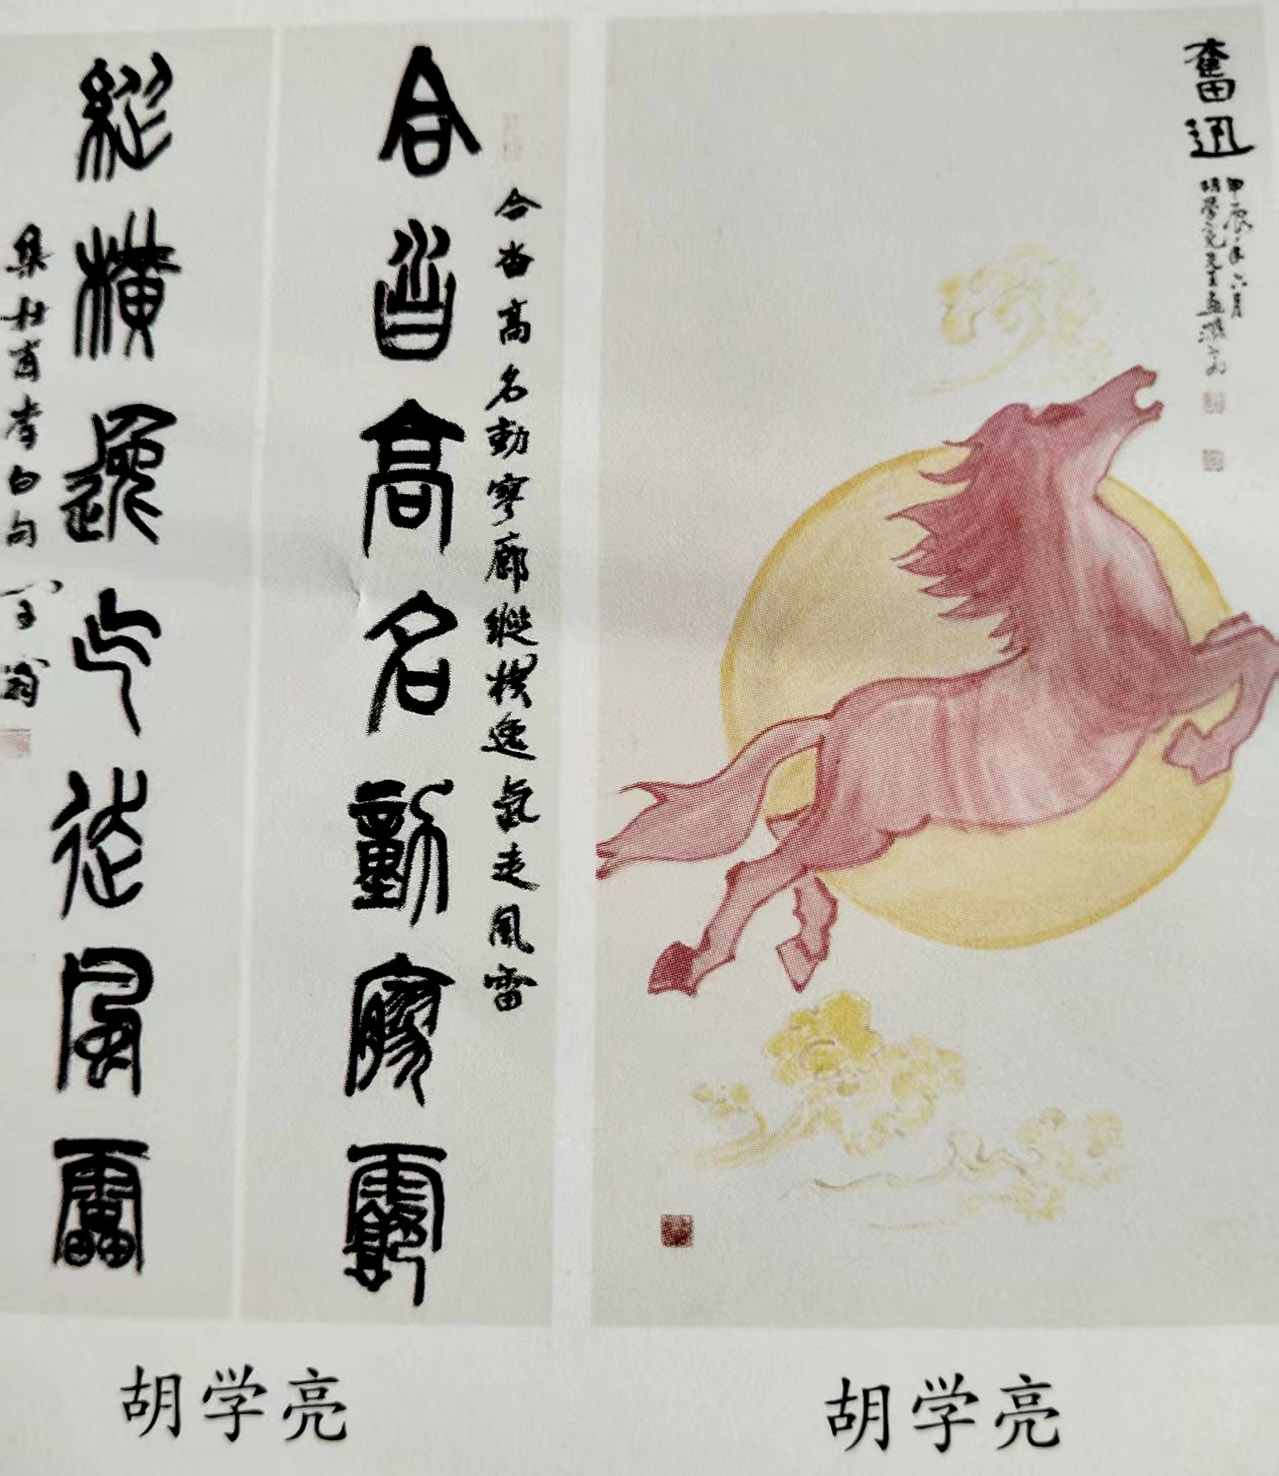 奮迅
甲辰年六月
合沓高名動寥廓縱橫逸氣走風雷
合沓高名動寥霩
縱橫逸气走風靁
集杜甫李白句
胡学亮
胡学亮